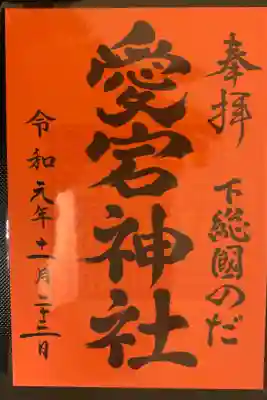 奉拝
下総國のだ
愛宕神社
令和元年十一月二十三日